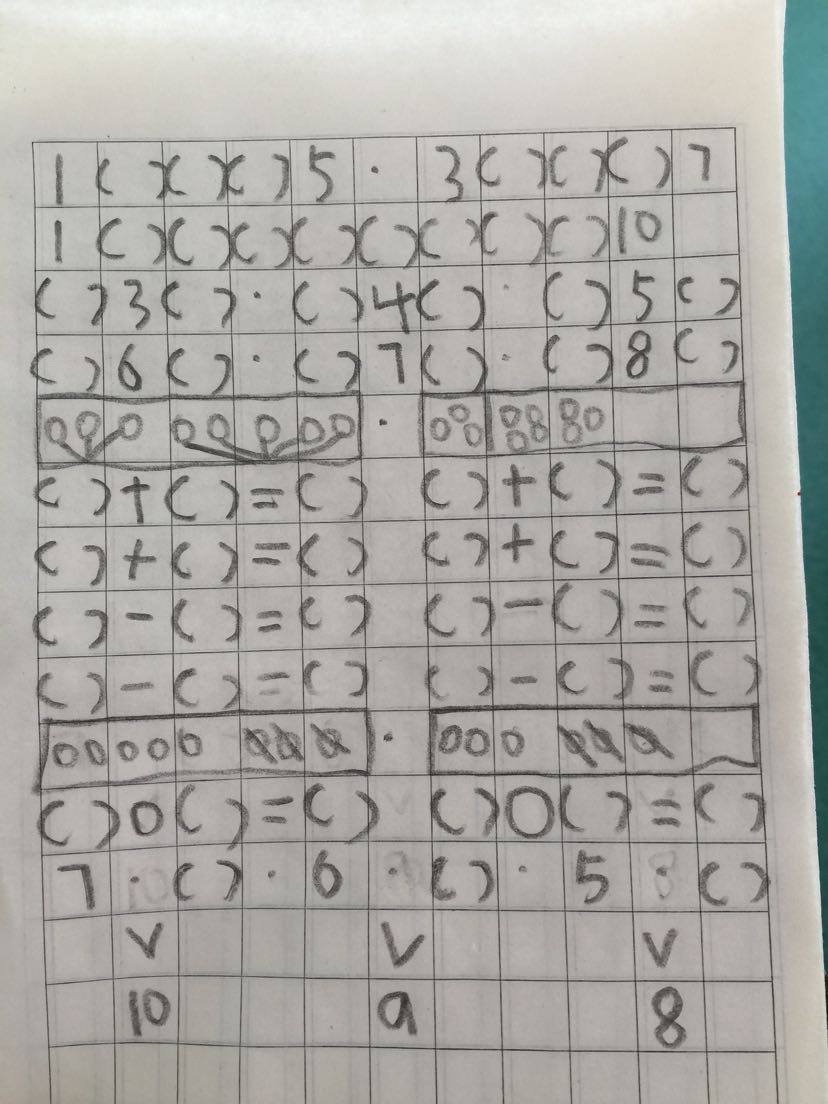 1( )( )( )5 · 3( )( )( )7
1( )( )( )( )( )( )( )( )10
( )3( ) · ( )4( ) · ( )5( )
( )6( ) · ( )7( ) · ( )8( )
( )+( )=( ) ( )+( )=( )
( )+( )=( ) ( )+( )=( )
( )-( )=( ) ( )-( )=( )
( )-( )=( ) ( )-( )=( )
( )○( )=( ) ( )○( )=( )
7 · ( ) · 6 · ( ) · 5 · ( )
∨ ∨ ∨
10 9 8